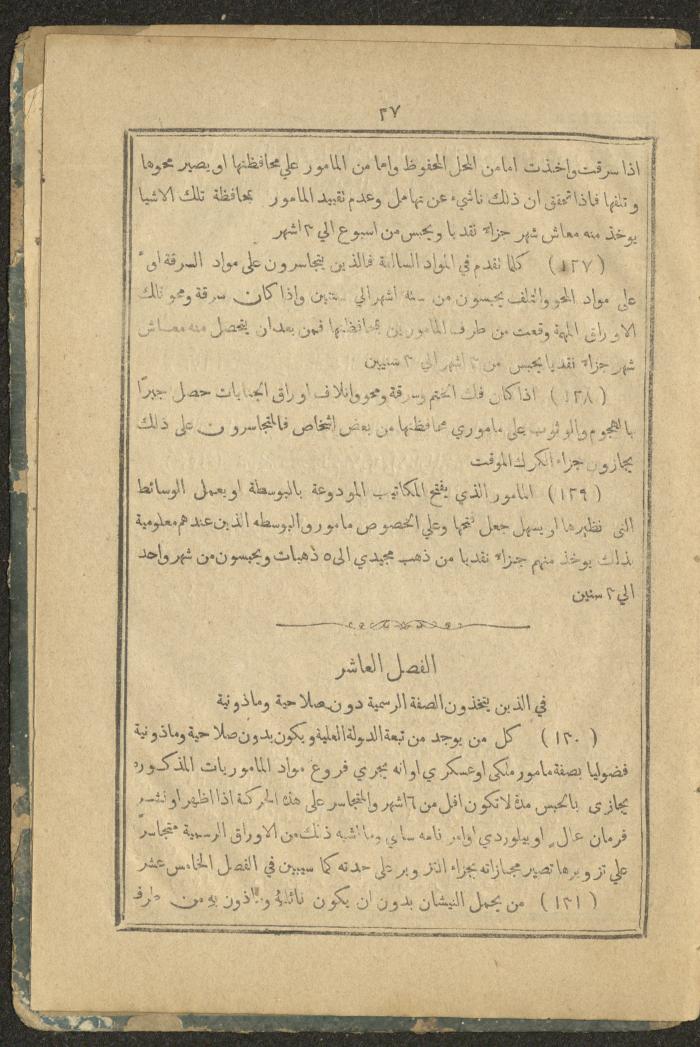 ٢٧
اذا سرقت واخذت اما من المحل المحفوظ واما من المامور علي محافظتها او يصير محوها
وتلفها فاذا تحقق ان ذلك ناشيء عن تهامل وعدم تقييد المامور بمحافظة تلك الاشيا
يوخذ منه معاش شهر جزاءً نقديا ويحبس من اسبوع الي ٣ اشهر
(١٢٧) كلما تقدم في المواد السالفة فالذين يتجاسرون على مواد السرقة او
على مواد المحو والتلف يحبسون من ستة اشهر الي سنتين واذا كان سرقة ومحو تلك
الاوراق المهمة وقعت من طرف المامورين بمحافظتها فمن بعد ان يتحصل منه معاش
شهر جزاء نقديا يحبس من ٣ اشهر الي ٣ سنيين
(١٢٨) اذا كان فك الختم وسرقة ومحو واتلاف اوراق الجنايات حصل جبرًا
بالهجوم والوثوب على ماموري محافظتها من بعض اشخاص فالمتجاسرون على ذلك
يجازون جزاء الكرك الموقت
(١٢٩) المامور الذي يفتح المكاتيب المودوعة بالبوسطة او يعمل الوسائط
التي نظيرها او يسهل جعل فتحها وعلي الخصوص مامورو البوسطه الذين عندهم معلومية
بذلك يوخذ منهم جزاءً نقديا من ذهب مجيدي الى ٥ ذهبات ويحبسون من شهر واحد
الي ٣ سنين
الفصل العاشر
في الذين يتخذون الصفة الرسمية دون صلاحية وماذونية
(١٣٠) كل من يوجد من تبعة الدولة العلية ويكون بدون صلاحية وماذونية
فضوليا بصفة مامور ملكي او عسكري او انه يجري فروع مواد الماموريات المذكوره
يجازى بالحبس مدة لا تكون اقل من ٦ اشهر والمتجاسر على هذه الحركة اذا اظهر او نشر
فرمان عالٍ او بيلوردي اوامر نامه سامي وما اشبه ذلك من الاوراق الرسمية متجاسرًا
علي تزويرها تصير مجازاته بجزاء التزوير على حدته كما سيبين في الفصل الخامس عشر
(١٣١) من يحمل النيشان بدون ان يكون نائله وماذون به من طرف